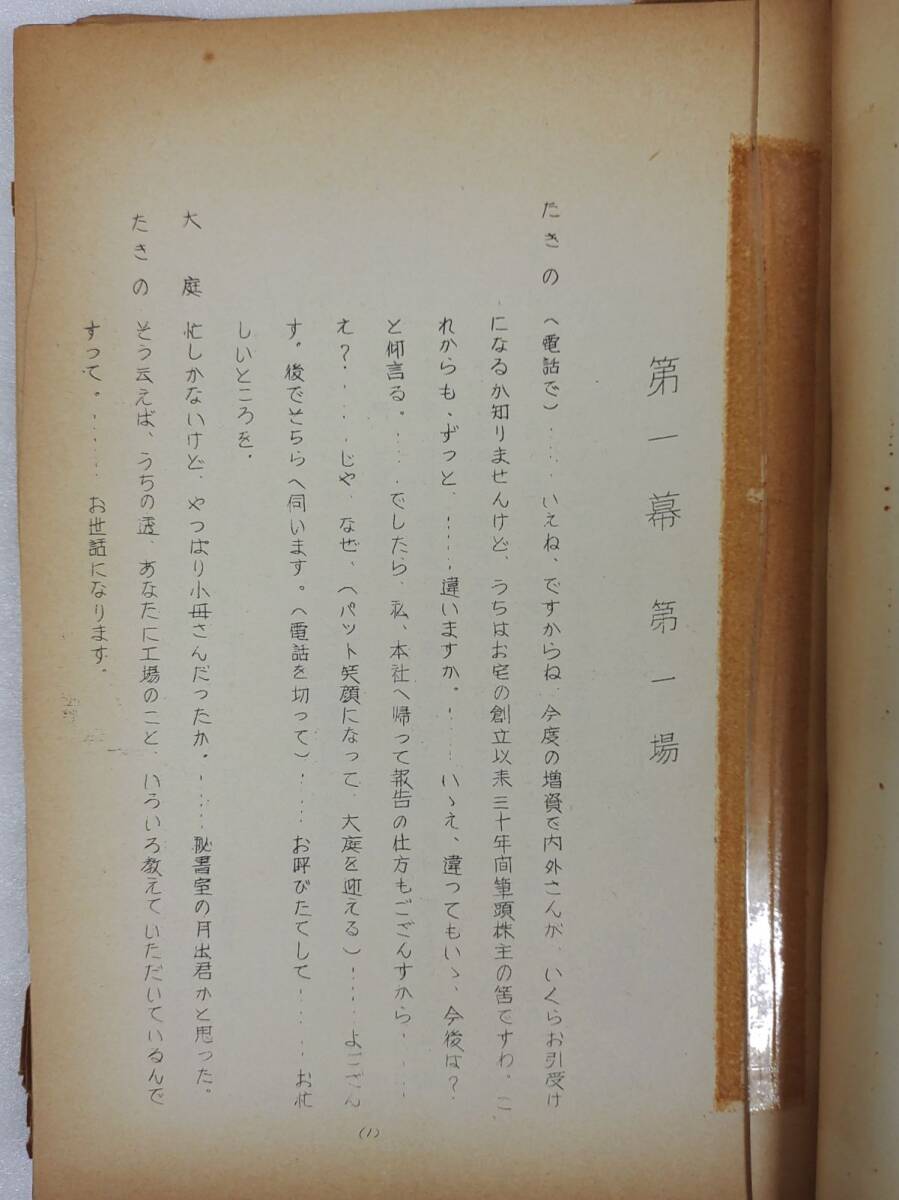 第一幕 第一場
たきの (電話で)‥‥いえね、ですからね、今度の増資で内外さんが、いくらお引受け
になるか知りませんけど、うちはお宅の創立以来三十年間筆頭株主の筈ですわ。こ
れからも、ずっと、‥‥違いますか。‥‥いゝえ、違ってもいゝ、今後は?
と仰言る。‥‥でしたら、私、本社へ帰って報告の仕方もござんすから‥‥
え?‥‥じゃ、なぜ、(パット笑顔になって、大庭を迎える)‥‥よござん
す。後でそちらへ伺います。(電話を切って)‥‥お呼びたてして‥‥お忙
しいところを、
大庭 忙しかないけど、やっぱり小母さんだったか。‥‥秘書室の月出君かと思った。
たきの そう云えば、うちの透、あなたに工場のこと、いろいろ教えていただいているんで
すって。‥‥お世話になります。
(1)